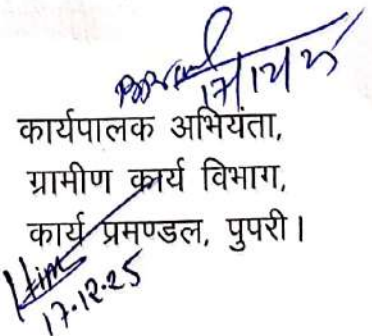 17/12/25
कार्यपालक अभियंता,
ग्रामीण कार्य विभाग,
कार्य प्रमण्डल, पुपरी।
17.12.25